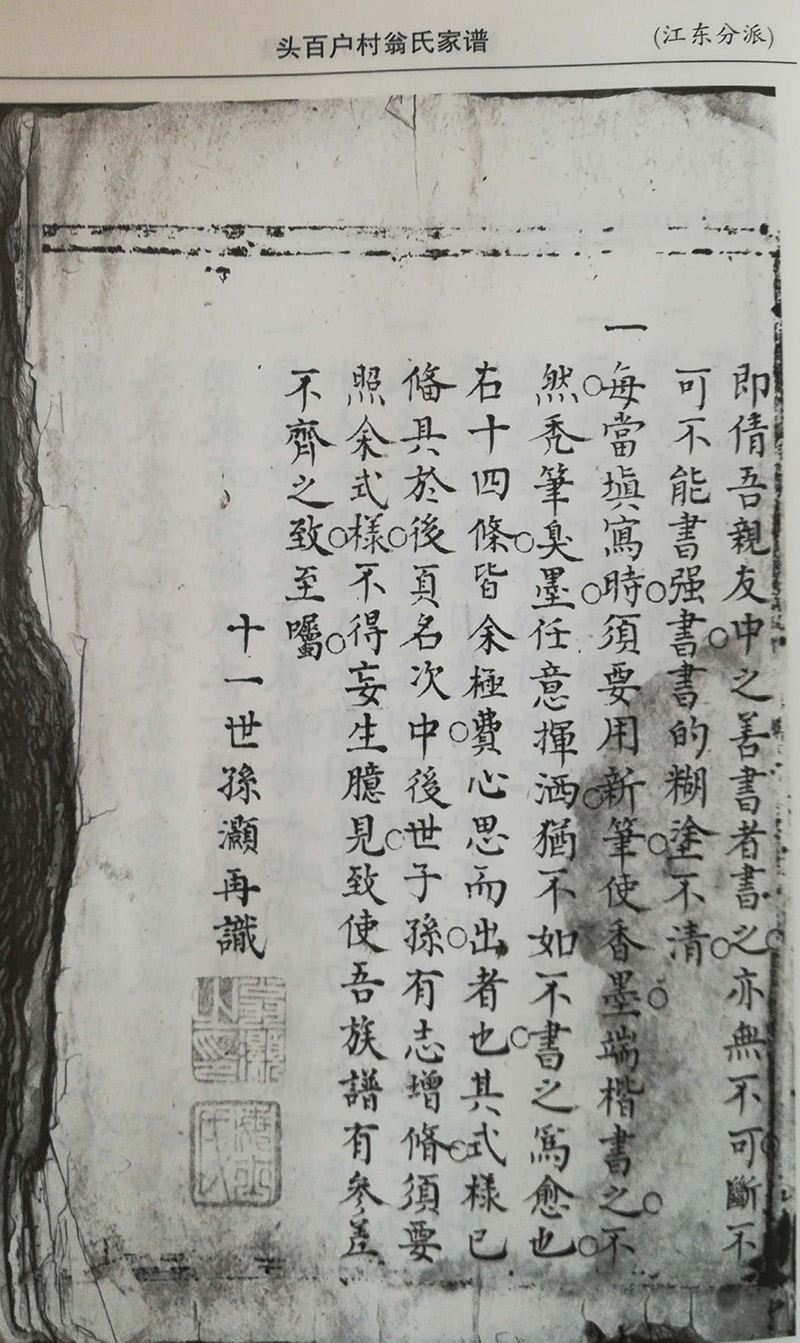 头百户村翁氏家谱
(江东分派)
即倩吾親友中之善書者書之亦無不可斷不
可不能書强書書的糊塗不清
一每當塡寫時須要用新筆使香墨端楷書之不
然禿筆臭墨任意揮洒猶不如不書之爲愈也
右十四條皆余極費心思而出者也其式樣已
俻具於後頁名次中後世子孫有志增脩須要
照余式樣不得妄生臆見致使吾族譜有參差
不齊之致至囑
十一世孫灝再識